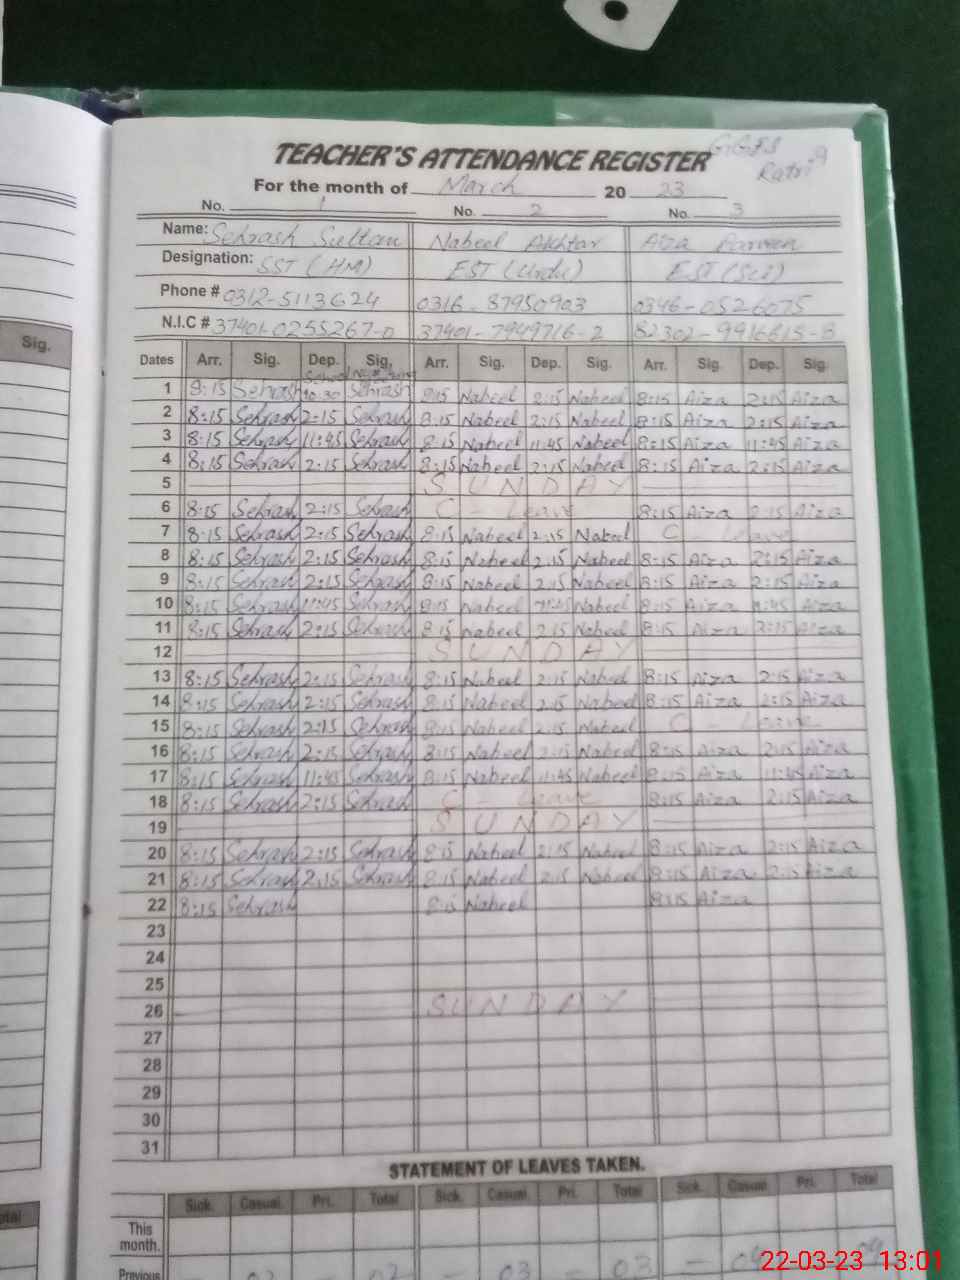 TEACHER'S ATTENDANCE REGISTER
GGES
Ratria
For the month of March 20 23
No. 1 No. 2 No. 3
Name: Sehrash Sultan Nabeel Akhtar Aiza Parveen
Designation: SST (HM) EST (Urdu) EST (Sci)
Phone # 0312-5113624 0316-87950903 0346-0526075
N.I.C # 37401-0255267-0 37401-7949716-2 82302-9916615-8
Sig.
Dates Arr. Sig. Dep. Sig. Arr. Sig. Dep. Sig. Arr. Sig. Dep. Sig.
1 8:15 Sehrash 10:30 Sehrash 8:15 Nabeel 2:15 Nabeel 8:15 Aiza 2:15 Aiza
2 8:15 Sehrash 2:15 Sehrash 8:15 Nabeel 2:15 Nabeel 8:15 Aiza 2:15 Aiza
3 8:15 Sehrash 11:45 Sehrash 8:15 Nabeel 11:45 Nabeel 8:15 Aiza 11:45 Aiza
4 8:15 Sehrash 2:15 Sehrash 8:15 Nabeel 2:15 Nabeel 8:15 Aiza 2:15 Aiza
5 SUNDAY
6 8:15 Sehrash 2:15 Sehrash C - Leave 8:15 Aiza 2:15 Aiza
7 8:15 Sehrash 2:15 Sehrash 8:15 Nabeel 2:15 Nabeel C - Leave
8 8:15 Sehrash 2:15 Sehrash 8:15 Nabeel 2:15 Nabeel 8:15 Aiza 2:15 Aiza
9 8:15 Sehrash 2:15 Sehrash 8:15 Nabeel 2:15 Nabeel 8:15 Aiza 2:15 Aiza
10 8:15 Sehrash 11:45 Sehrash 8:15 Nabeel 11:45 Nabeel 8:15 Aiza 11:45 Aiza
11 8:15 Sehrash 2:15 Sehrash 8:15 Nabeel 2:15 Nabeel 8:15 Aiza 2:15 Aiza
12 SUNDAY
13 8:15 Sehrash 2:15 Sehrash 8:15 Nabeel 2:15 Nabeel 8:15 Aiza 2:15 Aiza
14 8:15 Sehrash 2:15 Sehrash 8:15 Nabeel 2:15 Nabeel 8:15 Aiza 2:15 Aiza
15 8:15 Sehrash 2:15 Sehrash 8:15 Nabeel 2:15 Nabeel C - Leave
16 8:15 Sehrash 2:15 Sehrash 8:15 Nabeel 2:15 Nabeel 8:15 Aiza 2:15 Aiza
17 8:15 Sehrash 11:45 Sehrash 8:15 Nabeel 11:45 Nabeel 8:15 Aiza 11:45 Aiza
18 8:15 Sehrash 2:15 Sehrash C - Leave 8:15 Aiza 2:15 Aiza
19 SUNDAY
20 8:15 Sehrash 2:15 Sehrash 8:15 Nabeel 2:15 Nabeel 8:15 Aiza 2:15 Aiza
21 8:15 Sehrash 2:15 Sehrash 8:15 Nabeel 2:15 Nabeel 8:15 Aiza 2:15 Aiza
22 8:15 Sehrash 8:15 Nabeel 8:15 Aiza
23
24
25
26 SUNDAY
27
28
29
30
31
STATEMENT OF LEAVES TAKEN.
Sick. Casual. Pri. Total Sick. Casual. Pri. Total Sick. Casual. Pri. Total
This
month.
Previous 02 02 - 03 03 - 04 04
22-03-23 13:01